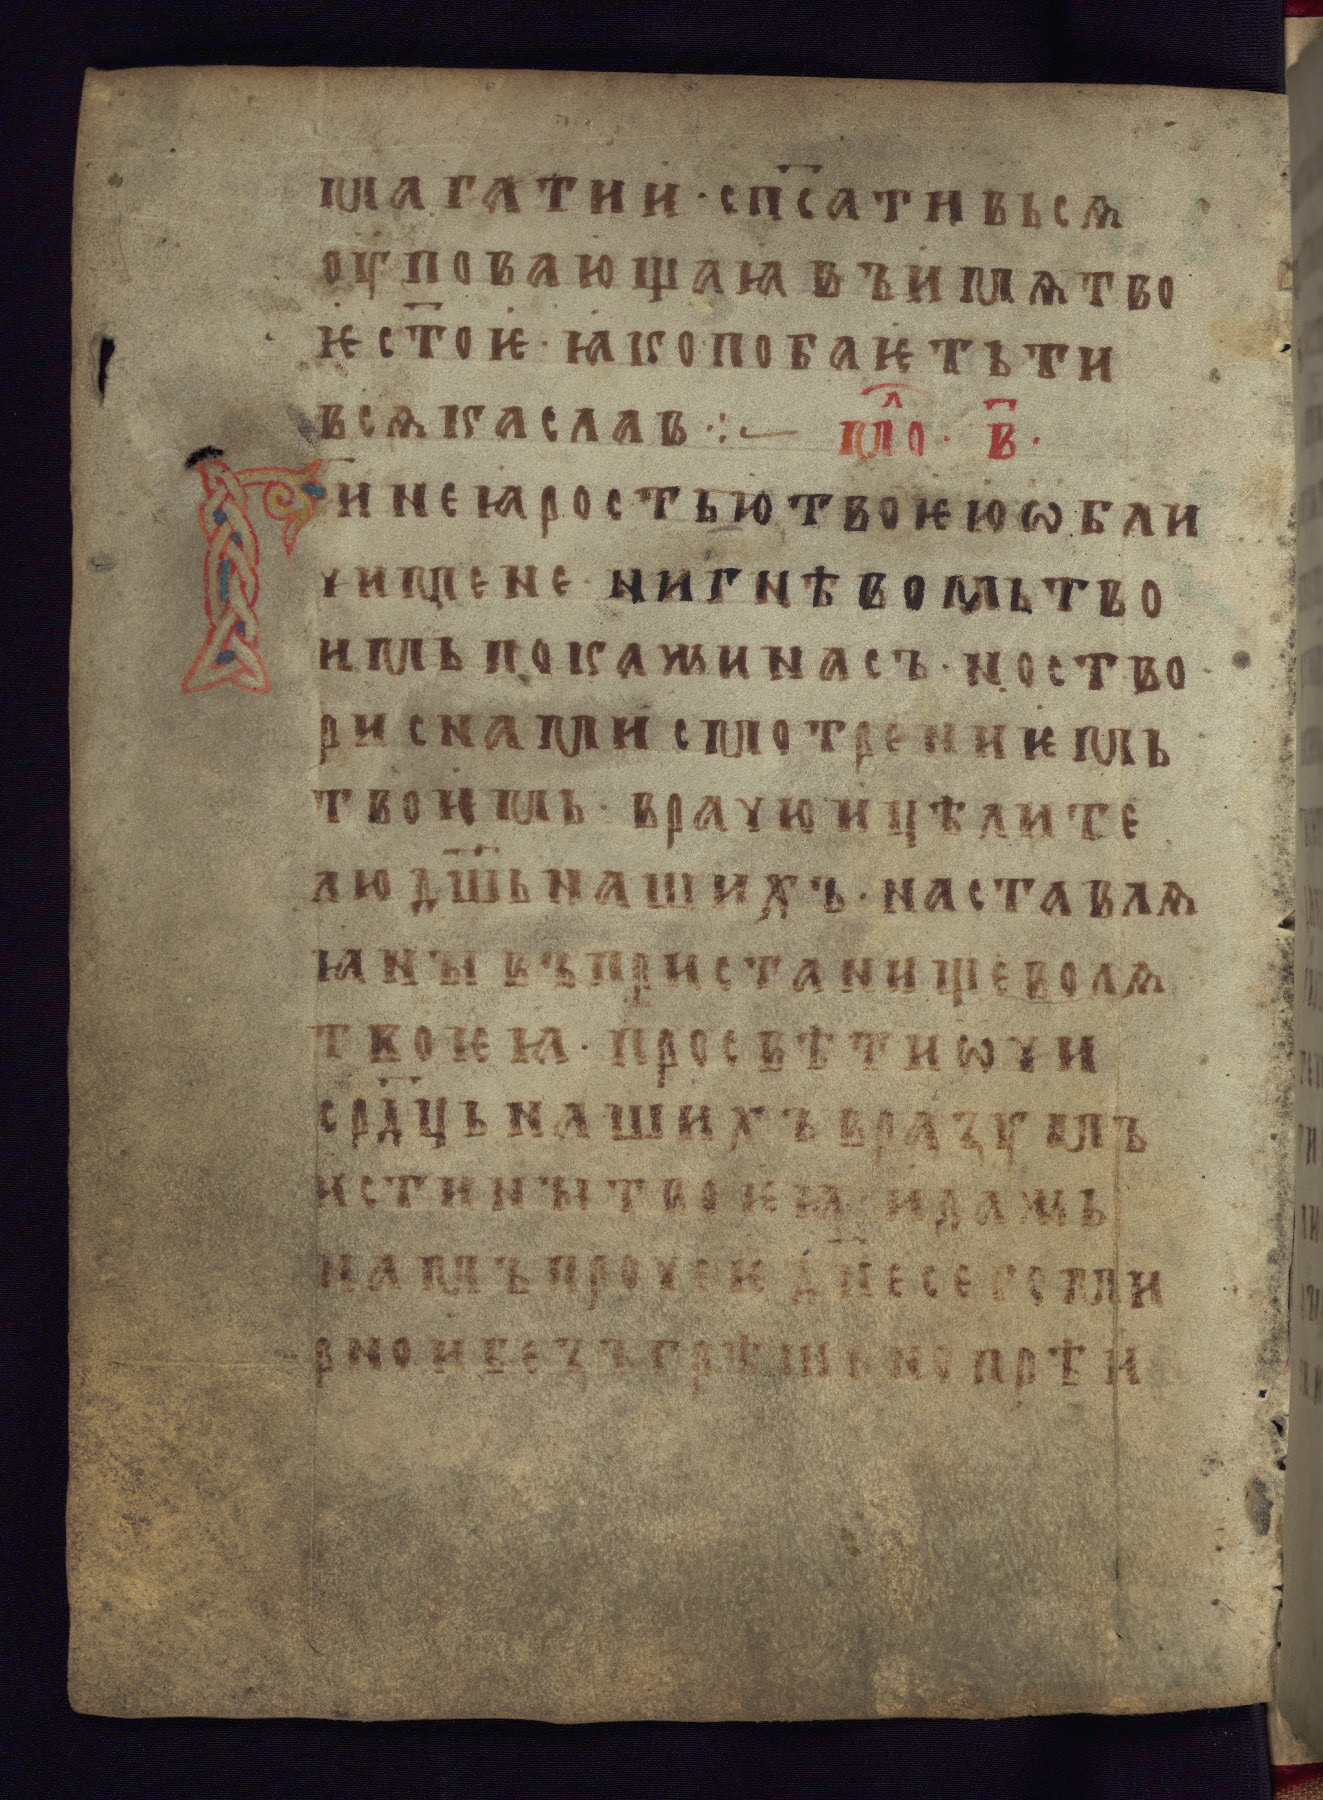 магати и · сп҃сати вьсѧ
оуповающаꙗ въ имѧ тво
ѥ ст҃оѥ · ꙗко побаѥть ти
всѧка слав · : — мл҃о · в҃ ·
Г҃и не ꙗростью твоѥю ѡбли
чи мене · ни гнѣвомь тво
имь покажи насъ · но ство
ри с нами смотрениѥмь
твоимь · врачю и цѣлите
лю дш҃ь нашихъ · наставлѧ
ꙗ ны въ пристанище волѧ
твоѥꙗ · просвѣти ѡчи
срд҃ць нашихъ в разумъ
истины твоѥꙗ · и дажь
намъ прочеѥ дн҃е сего ми
рно и безъгрѣшьно прѣи